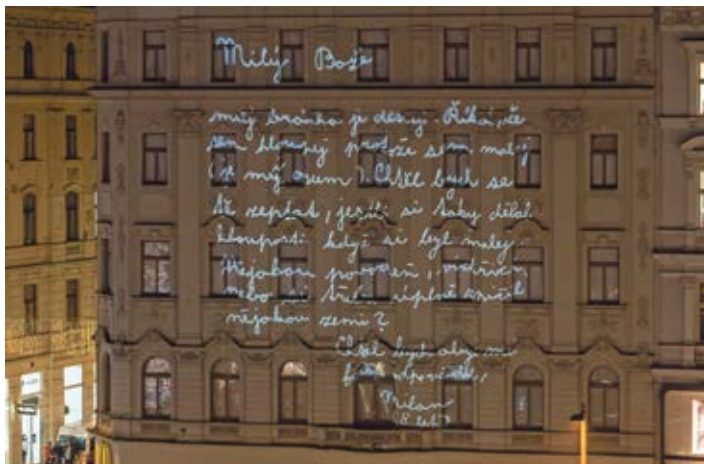 Milý Bože
můj brácha je desnej. Říká, že
sem hloupej protože sem malej
(je mý osum). Chtěl bych se
tě zeptat, jestli si taky dělal
hlouposti když si byl malej.
Nějakou povodeň,
nebo si třeba úplně zničil
nějakou zemi?
Chtěl bych aby mi
Milan
8 let